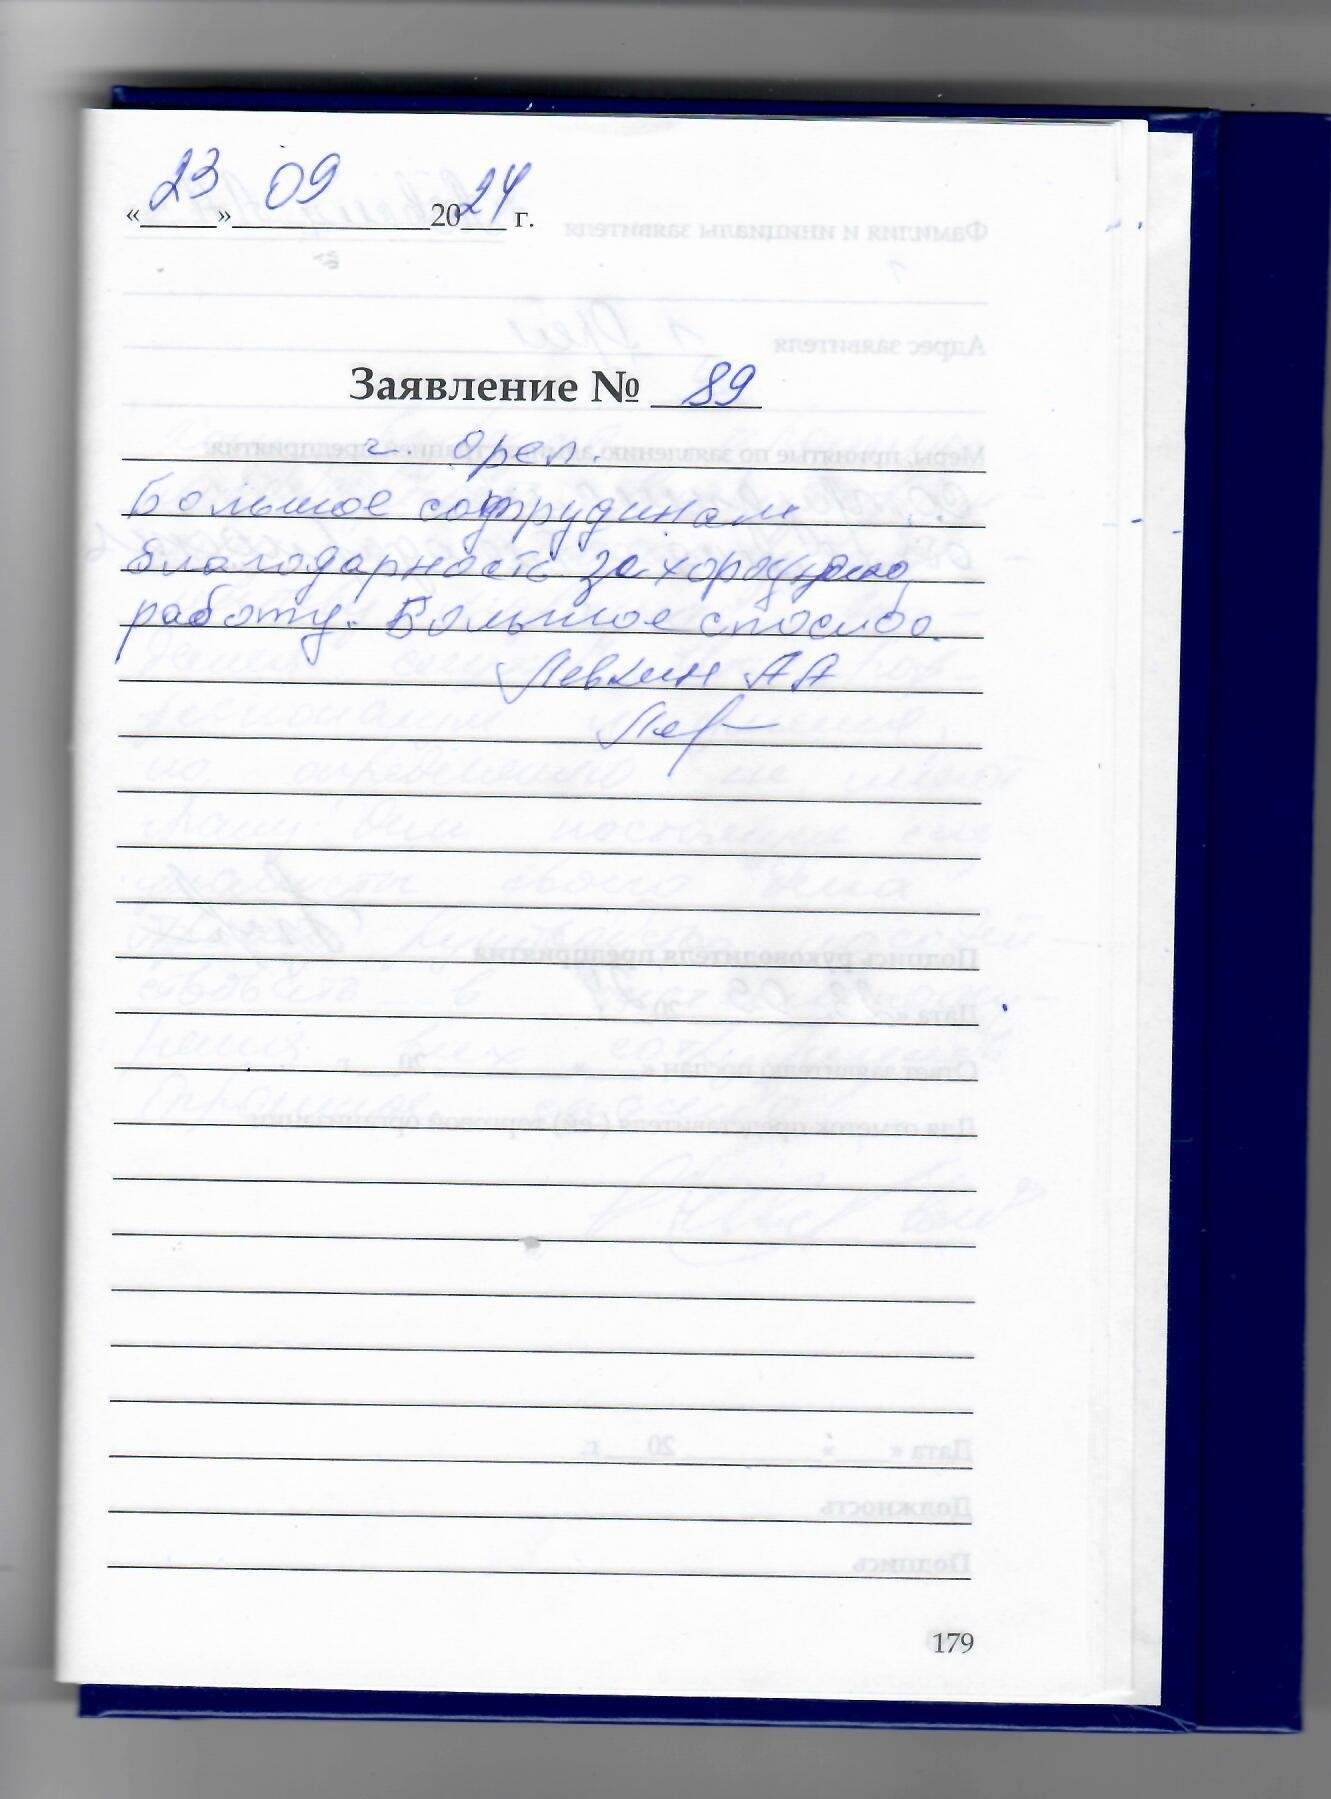 «23» 09 2024 г.
Заявление № 89
г. Орел.
Большое сотрудинам
благодарность за хорошую
работу. Большое спосибо.
Левкин АА
179